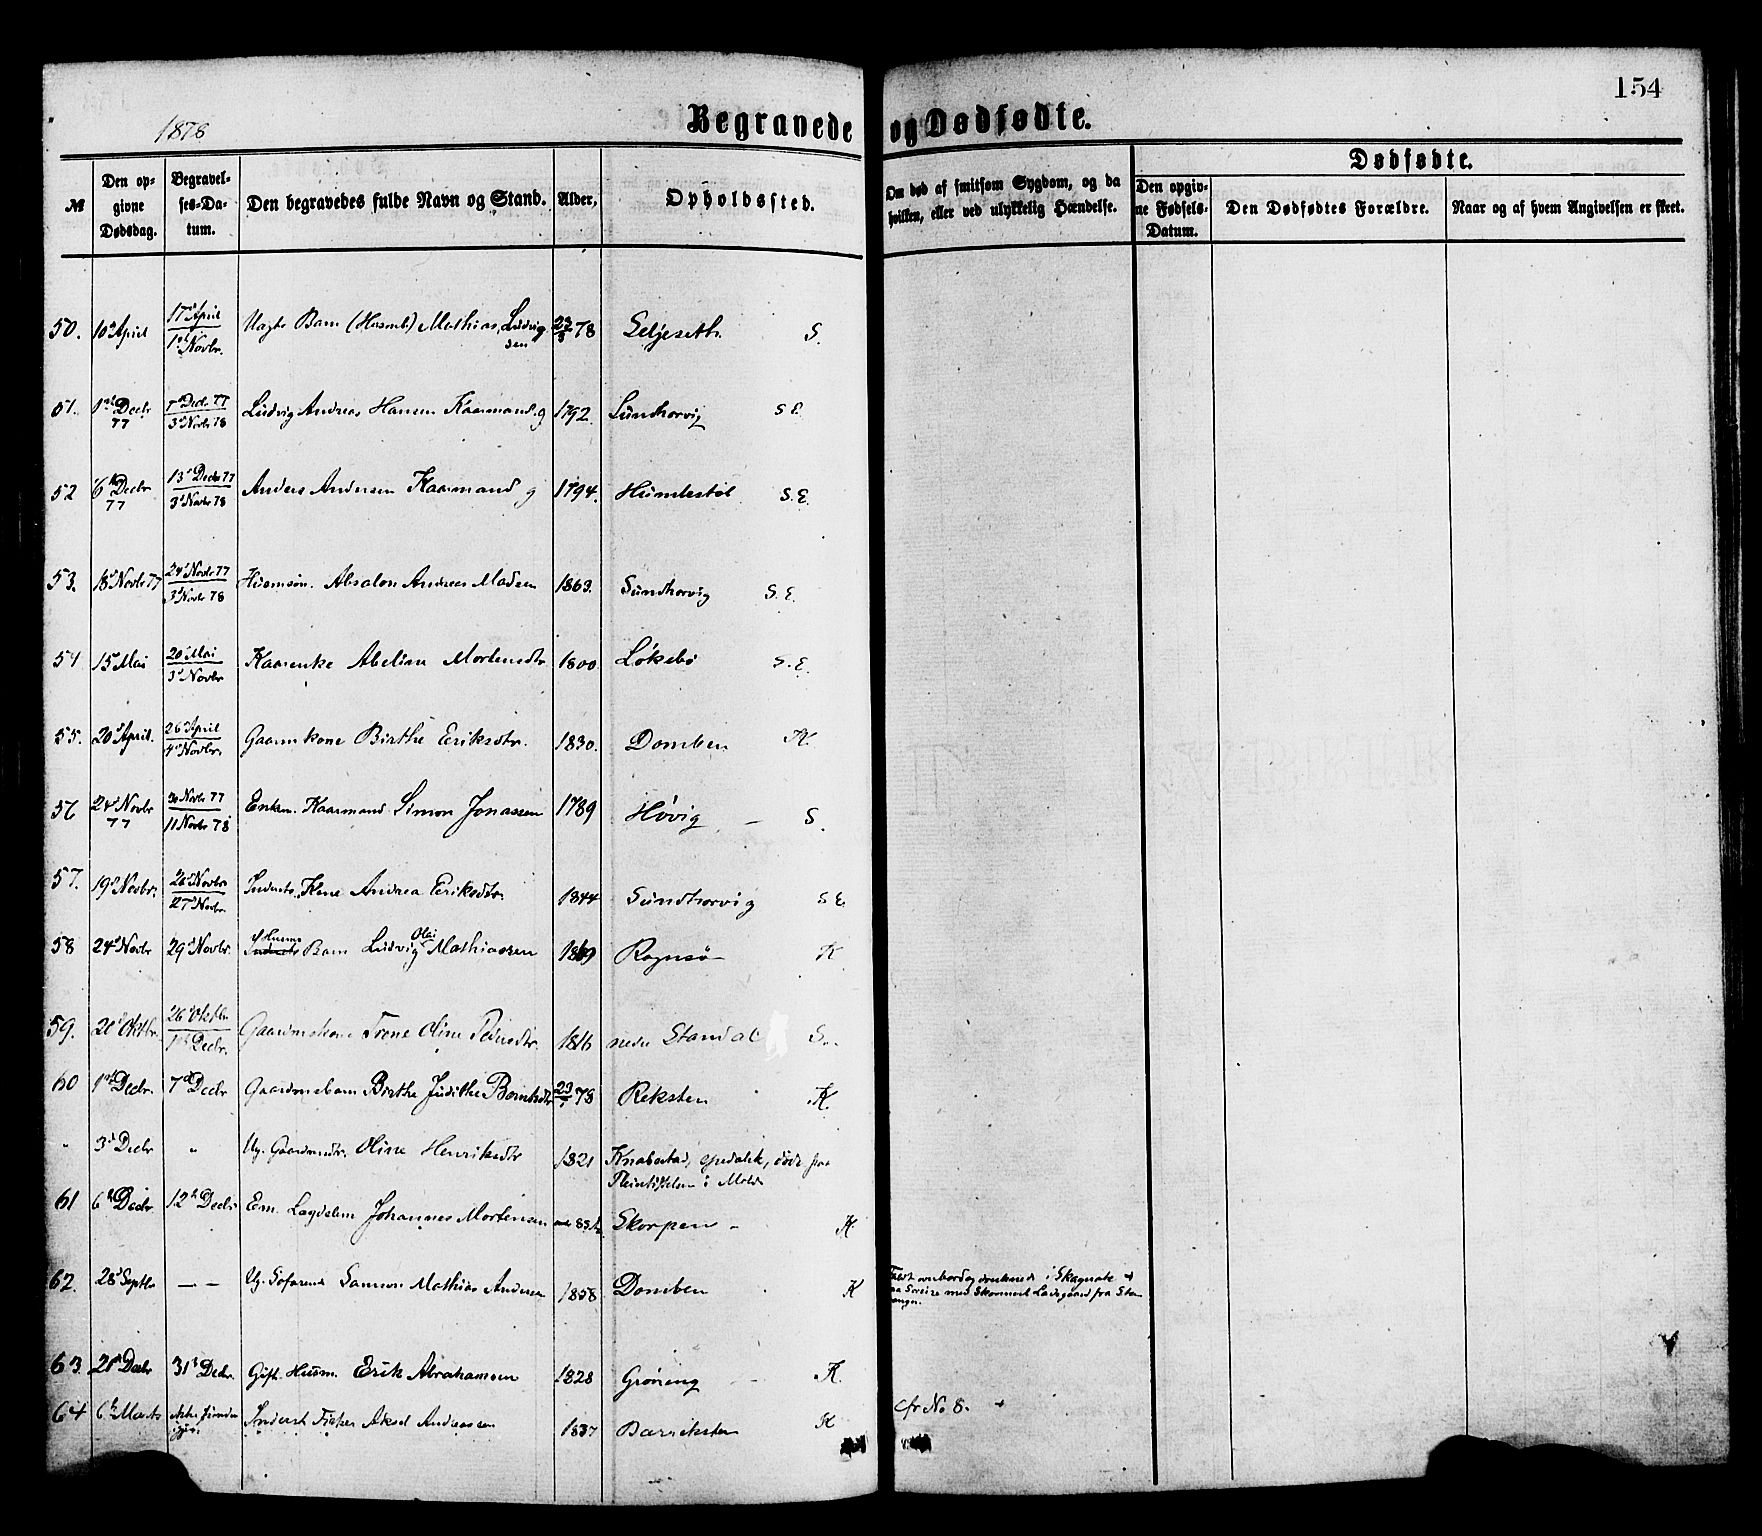 154
1878
Begravede og Dødfødte.
№
Den op-
givne
Dødsdag.
Begravel-
ses-Da-
tum.
Den begravedes fulde Navn og Stand.
Alder,
Opholdssted.
Om død af smitsom Sygdom, og da
hvilken, eller ved ulykkelig Hændelse.
Dødfødte.
Den opgiv-
ne Fødsels-
Datum.
Den Dødfødtes Forældre.
Naar og af hvem Angivelsen er skeet.
50. 10d April 17d April / 1st Novbr. Barn (Husmb.) Mathias Ludvig
sen 78 Seljeseth. S.
51. 1st Decbr 77 7d Decbr 77 / 3d Novbr 78 Ludvig Andreas Hansen Kaarmand. g 1792. Sundhorvig S E.
52 6th Decbr 77 13d Decbr 77 / 3d Novbr 78 Anders Andersen Kaarmand g 1794. Humlestøl S. E.
53. 18d Novbr 77 24d Novbr 77 / 3d Novbr 78 Husmsøn. Absalon Andreas Madsen 1863. Sundhorvig S. E.
54 15d Mai 20d Mai / 3d Novbr Kaarenke Abeline Mortensdtr 1800 Løkebø S. E.
55. 20d April. 26d April / 4d Novbr. Gaarmkone Birthe Eriksdtr. 1830. Domben K.
56 24d Novbr 77 30 Novbr 77 / 11 Novbr 78 Enkem. Kaarmand Simon Jonassen 1789 Høvig – S.
57. 19d Novbr. 26d Novbr / 27d Novbr. Inderst. Andrea Eriksdtr. 1844 Sundhorvig S E.
58 24d Novbr 29d Novbr. Husms Barn Ludvig Olai Mathiassen 1869 Rognsø K
59. 20d Oktbr. 26d Oktbr. / 1st Decbr. Gaardmskone Trene Oline Pedersdtr. 1816 nedre Standal S.
60 1st Decbr. 7d Decbr Gaardmsbarn Birthe Judithe Berntsdtr 78 Reksten K.
" 3d Decbr " Ug. Gaardmdtr. Oline Henriksdtr 1821 Knabestad, spedalsk, døde paa
Pleiestiftelsen i Molde
61 6th Decbr. 12th Decbr Em. Lægdslem Johannes Mortensen Skorpen – K
62. 28d Septbr — – Ug. Søfarende Samson Mathias Andersen 1858 Domben K Faldt overbord og druknede i Skagerak
paa Reise med Skonnert Ladegaard fra Sta
vanger.
63. 21d Decbr 31d Decbr. Gift. Husm. Erik Abrahamsen 1828 Grøning – K.
64 6th Marts Inderst Fisker Aksel Andreassen 1837 Barreksten K cfr No 8.